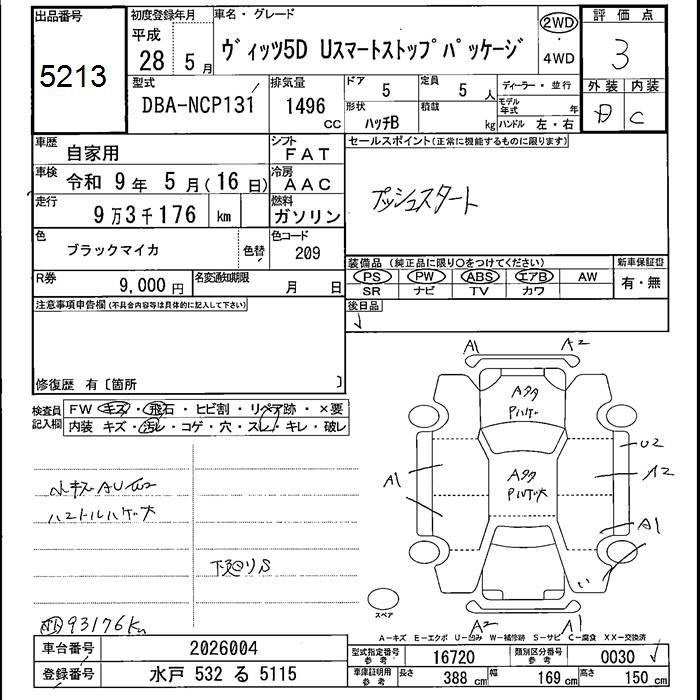 出品番号
5213
初度登録年月
平成
28 5 月
車名・グレード
ヴィッツ5D Uスマートストップパッケージ
2WD
・
4WD
評価点
3
外装 内装
C
型式
DBA-NCP131
排気量
1496 CC
ドア 5
定員 5 人
形状 ハッチB
積載 kg
ディーラー・並行
モデル年式 年
ハンドル 左・右
車歴 自家用
シフト FAT
車検 令和 9 年 5 月(16 日)
冷房 AAC
走行 9万3千176 km
燃料 ガソリン
色 ブラックマイカ
色替
色コード 209
R券 9,000 円
名変通知期限 月 日
セールスポイント(正常に機能するものに限ります)
プッシュスタート
装備品(純正品に限り○をつけてください)
新車保証書
PS PW ABS エアB AW
SR ナビ TV カワ
有・無
後日品
注意事項申告欄(不具合内容等は具体的に記入して下さい)
修復歴 有〔箇所 〕
検査員記入欄
FW キズ・飛石・ヒビ割・リペア跡・×要
内装 キズ・汚レ・コゲ・穴・スレ・キレ・破レ
ハンドルハゲ大
下廻りS
93176Km
A1 A2
U2
A1 A2
A1
A2 A1
スペア
A-キズ E-エクボ U-凹み W-補修跡 S-サビ C-腐食 XX-交換済
車台番号 2026004
登録番号 水戸 532 る 5115
型式指定番号 参考 16720
類別区分番号 参考 0030
車庫証明用 参考 長さ 388 cm 幅 169 cm 高さ 150 cm